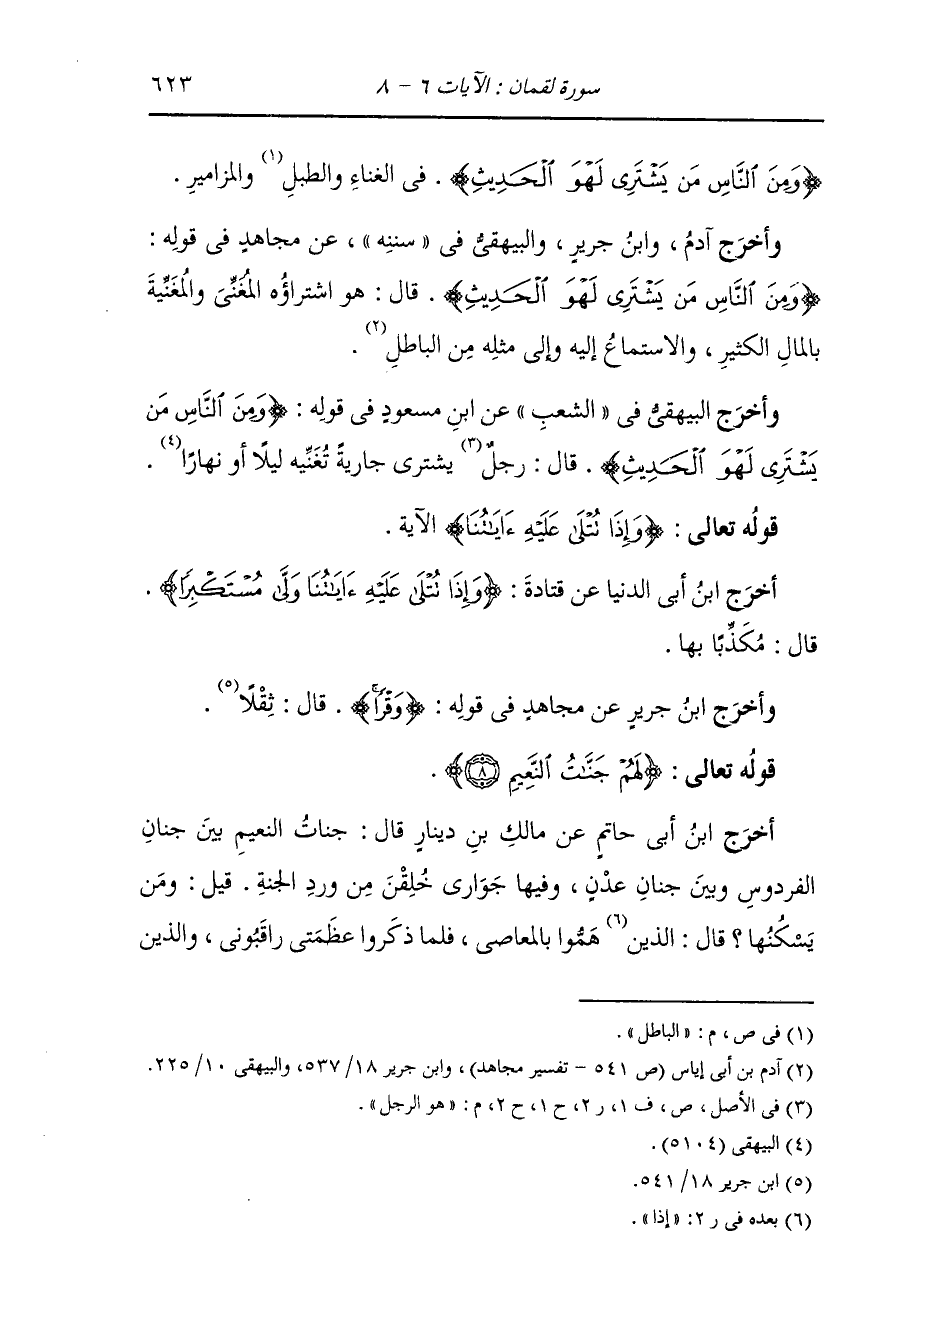 سورة لقمان : الآيات ٦ - ٨ ٦٢٣
﴿وَمِنَ ٱلنَّاسِ مَن يَشْتَرِى لَهْوَ ٱلْحَدِيثِ﴾ . فى الغناءِ والطبلِ(١) والمزاميرِ .
وأخرَج آدمُ ، وابنُ جريرٍ ، والبيهقىُّ فى « سننِه » ، عن مجاهدٍ فى قولِه :
﴿وَمِنَ ٱلنَّاسِ مَن يَشْتَرِى لَهْوَ ٱلْحَدِيثِ﴾ . قال : هو اشتراؤُه المُغَنِّىَ والمُغَنِّيةَ
بالمالِ الكثيرِ ، والاستماعُ إليه وإلى مثلِه مِن الباطلِ(٢) .
وأخرَج البيهقىُّ فى « الشعبِ » عن ابنِ مسعودٍ فى قولِه : ﴿وَمِنَ ٱلنَّاسِ مَن
يَشْتَرِى لَهْوَ ٱلْحَدِيثِ﴾ . قال : رجلٌ(٣) يشترى جاريةً تُغَنِّيه ليلًا أو نهارًا(٤) .
قولُه تعالى : ﴿وَإِذَا تُتْلَىٰ عَلَيْهِ ءَايَٰتُنَا﴾ الآية .
أخرَج ابنُ أبى الدنيا عن قتادةَ : ﴿وَإِذَا تُتْلَىٰ عَلَيْهِ ءَايَٰتُنَا وَلَّىٰ مُسْتَكْبِرًا﴾ .
قال : مُكَذِّبًا بها .
وأخرَج ابنُ جريرٍ عن مجاهدٍ فى قولِه : ﴿وَقْرًاۖ﴾ . قال : ثِقْلًا(٥) .
قولُه تعالى : ﴿لَهُمْ جَنَّٰتُ ٱلنَّعِيمِ ٨﴾ .
أخرَج ابنُ أبى حاتمٍ عن مالكِ بنِ دينارٍ قال : جناتُ النعيمِ بينَ جنانِ
الفردوسِ وبينَ جنانِ عدْنٍ ، وفيها جَوَارى خُلِقْنَ مِن وردِ الجنةِ . قيل : ومَن
يَسْكُنُها ؟ قال : الذين(٦) هَمُّوا بالمعاصى ، فلما ذكَروا عظَمَتى راقَبُونى ، والذين
(١) فى ص ، م : « الباطل » .
(٢) آدم بن أبى إياس (ص ٥٤١ - تفسير مجاهد) ، وابن جرير ١٨/ ٥٣٧، والبيهقى ١٠/ ٢٢٥.
(٣) فى الأصل ، ص ، ف ١، ر ٢، ح ١، ح ٢، م : « هو الرجل » .
(٤) البيهقى (٥١٠٤) .
(٥) ابن جرير ١٨/ ٥٤١.
(٦) بعده فى ر ٢: « إذا » .